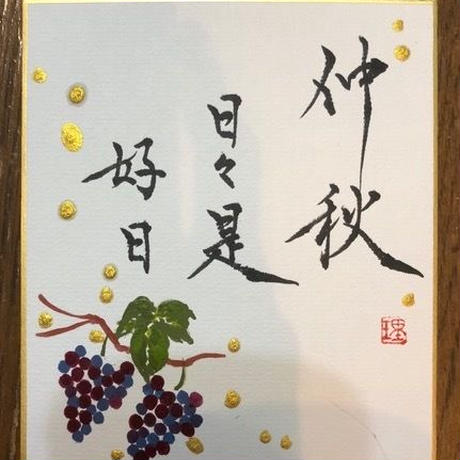 仲秋
日々是
好日
理